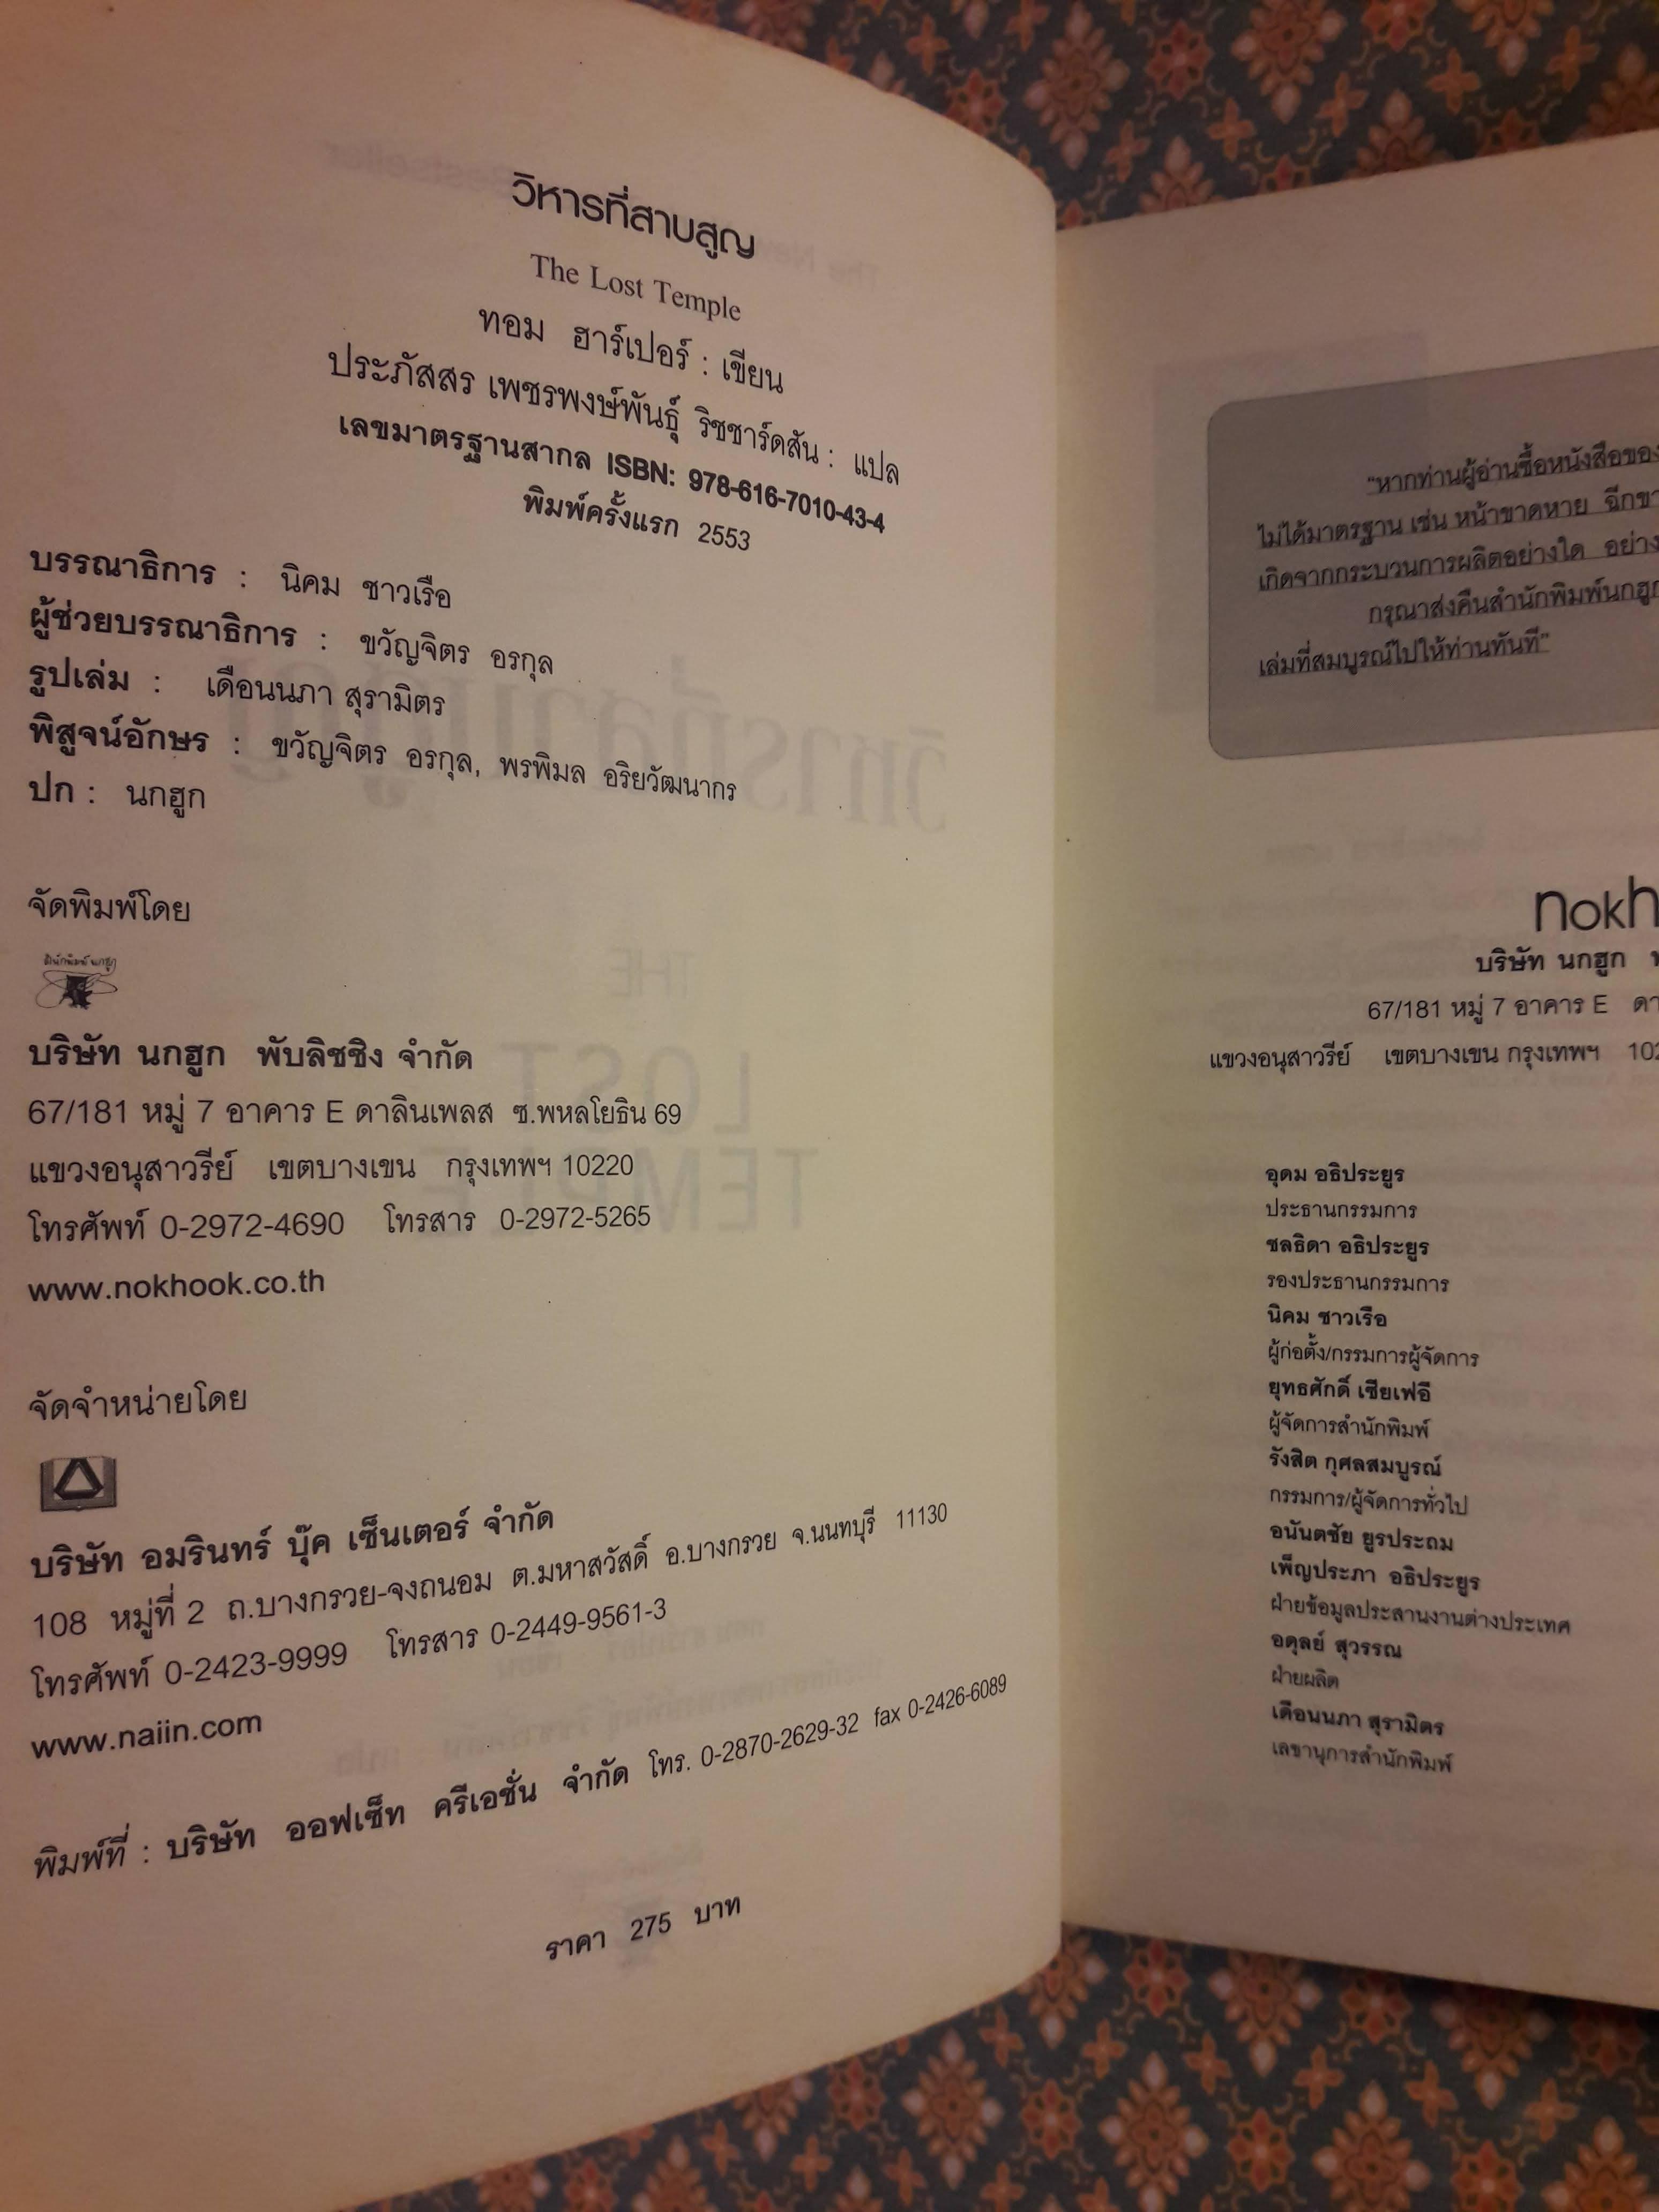 วิหารที่สาบสูญ
The Lost Temple
ทอม ฮาร์เปอร์ : เขียน
ประภัสสร เพชรพงษ์พันธุ์ ริชชาร์ดสัน : แปล
เลขมาตรฐานสากล ISBN: 978-616-7010-43-4
พิมพ์ครั้งแรก 2553
บรรณาธิการ : นิคม ชาวเรือ
ผู้ช่วยบรรณาธิการ : ขวัญจิตร อรกุล
รูปเล่ม : เดือนนภา สุรามิตร
พิสูจน์อักษร : ขวัญจิตร อรกุล, พรพิมล อริยวัฒนากร
ปก : นกฮูก
จัดพิมพ์โดย
สำนักพิมพ์ นกฮูก
บริษัท นกฮูก พับลิชชิง จำกัด
67/181 หมู่ 7 อาคาร E ดาลินเพลส ซ.พหลโยธิน 69
แขวงอนุสาวรีย์ เขตบางเขน กรุงเทพฯ 10220
โทรศัพท์ 0-2972-4690 โทรสาร 0-2972-5265
www.nokhook.co.th
จัดจำหน่ายโดย
บริษัท อมรินทร์ บุ๊ค เซ็นเตอร์ จำกัด
108 หมู่ที่ 2 ถ.บางกรวย-จงถนอม ต.มหาสวัสดิ์ อ.บางกรวย จ.นนทบุรี 11130
โทรศัพท์ 0-2423-9999 โทรสาร 0-2449-9561-3
www.naiin.com
พิมพ์ที่ : บริษัท ออฟเซ็ท ครีเอชั่น จำกัด โทร. 0-2870-2629-32 fax 0-2426-6089
ราคา 275 บาท
"หากท่านผู้อ่านซื้อหนังสือของ
ไม่ได้มาตรฐาน เช่น หน้าขาดหาย ฉีกขา
เกิดจากกระบวนการผลิตอย่างใด อย่าง
กรุณาส่งคืนสำนักพิมพ์นกฮูก
เล่มที่สมบูรณ์ไปให้ท่านทันที"
nokh
บริษัท นกฮูก
67/181 หมู่ 7 อาคาร E ดา
แขวงอนุสาวรีย์ เขตบางเขน กรุงเทพฯ 102
อุดม อธิประยูร
ประธานกรรมการ
ชลธิดา อธิประยูร
รองประธานกรรมการ
นิคม ชาวเรือ
ผู้ก่อตั้ง/กรรมการผู้จัดการ
ยุทธศักดิ์ เซียเฟอี
ผู้จัดการสำนักพิมพ์
รังสิต กุศลสมบูรณ์
กรรมการ/ผู้จัดการทั่วไป
อนันตชัย ยูรประถม
เพ็ญประภา อธิประยูร
ฝ่ายข้อมูลประสานงานต่างประเทศ
อดุลย์ สุวรรณ
ฝ่ายผลิต
เดือนนภา สุรามิตร
เลขานุการสำนักพิมพ์